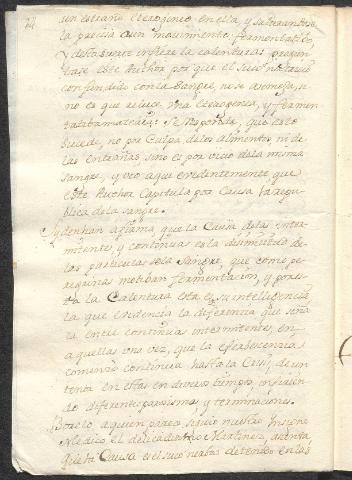 un estraño eterogineo en ella, y
la precisa a un movimiento fermentatibo,
y de esta suerte infiere la calenturas pregun-
tase este Author por que el suco nutricio
confundido con la sangre, no se asemeja, si
no es que adquiere una eterogenea, y fermen-
tatiba naturaleza: Se responde, que esto
sucede, no por culpa de los alimentos, ni de
las entrañas, sino es por vicio de la misma
sangre, y veo aqui evidentemente que
este Author Capitula por Causa la repu-
blica de la sangre.
Sydenhan aclama, que la Causa de las inter-
mitentes, y continuas es la desimetria de
las particulas de la Sangre, que como pe-
regrinas motiban fermentacion, y por es-
ta la Calentura esta es su inteligencia,
la que evidencia la diferencia que seña-
la entre continuas intermitentes, en
aquellas una vez, que la efervescencia
comenzo continua hasta la Crisi, de un
tenor en estas en diverso tiempo,
do diferentes paroxismos y terminaciones.
Borelo aquien parece siguio nuestro Insigne
Medico el delicadisimo Martinez, asienta,
que la Causa es el suco nerbeo detenido en las